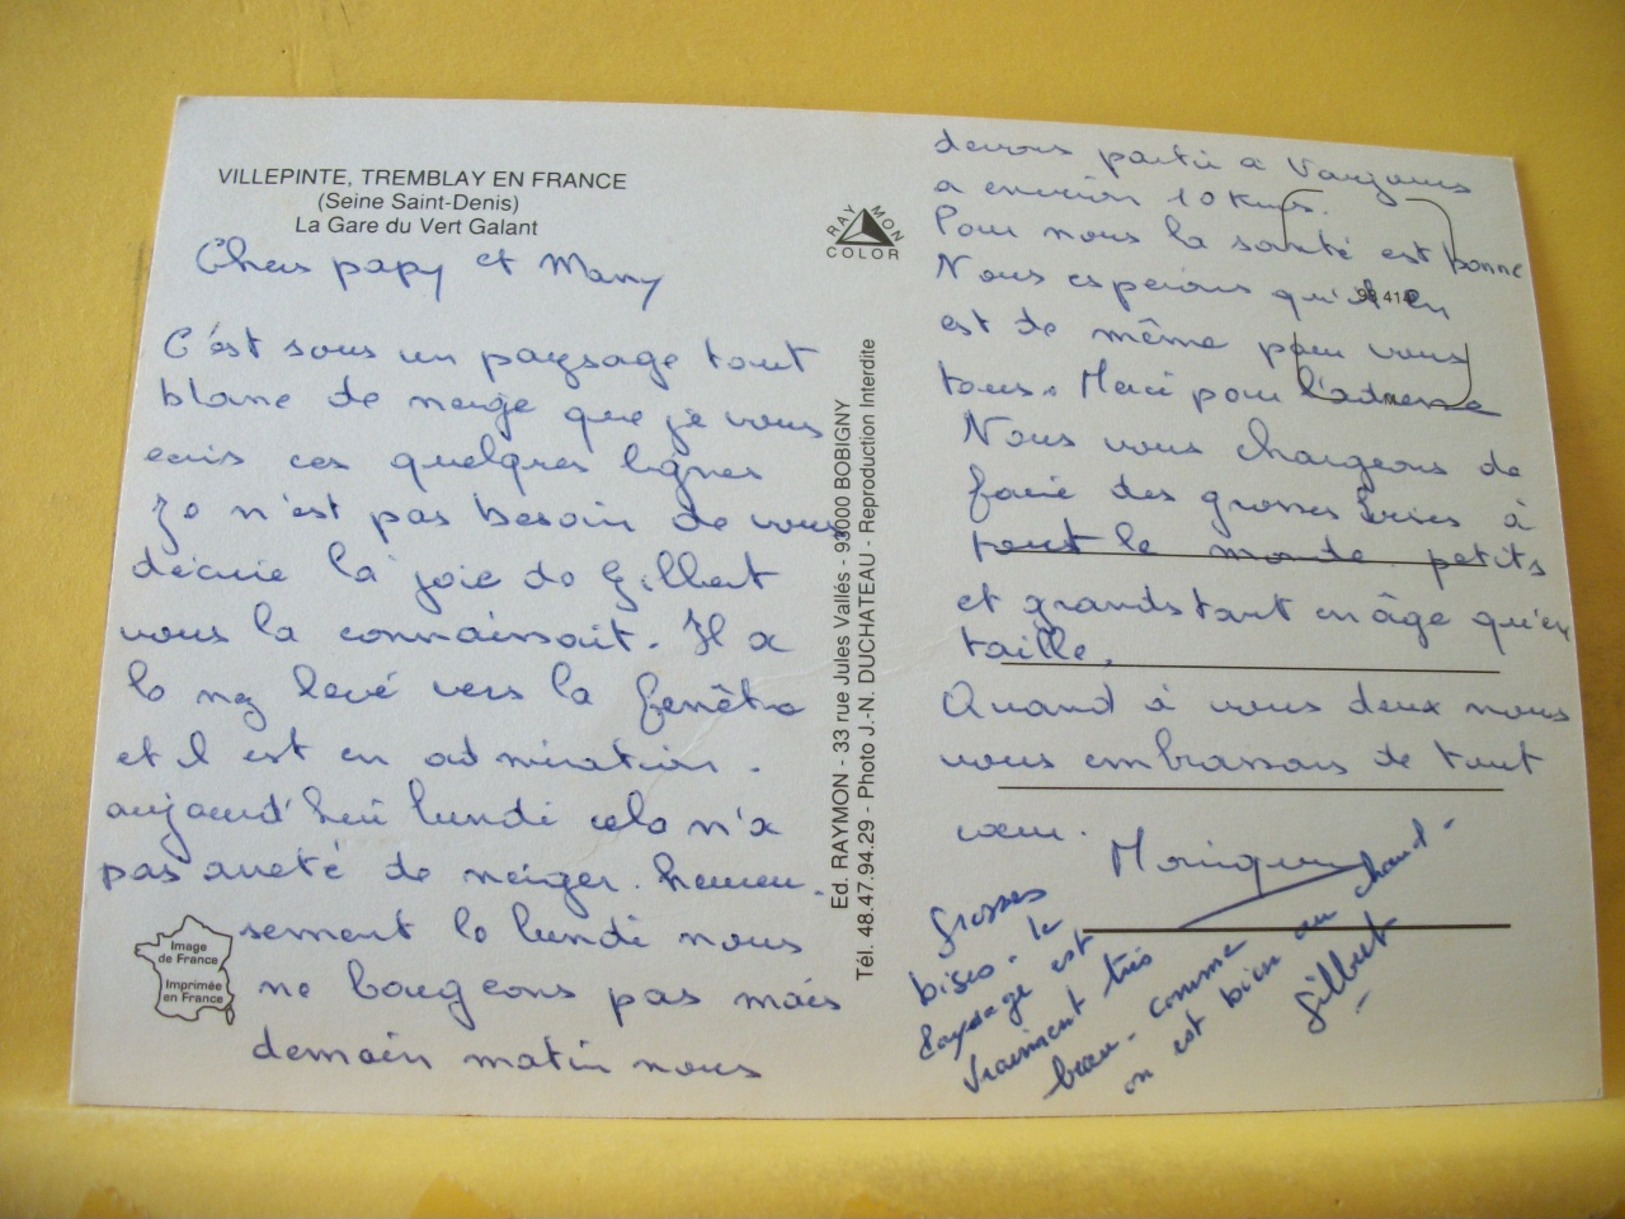 VILLEPINTE, TREMBLAY EN FRANCE
(Seine Saint-Denis)
La Gare du Vert Galant
Chers papy et Mamy
C'est sous un paysage tout
blanc de neige que je vous
ecris ces quelques lignes
Je n'est pas besoin de vous
décrire la joie de Gilbert
vous la connaissait. Il a
le nez levé vers la fenêtre
et il est en admiration.
aujourd'hui lundi cela n'a
pas arreté de neiger. heureu-
sement le lundi nous
ne bougeons pas mais
demain matin nous
Image
de France
Imprimée
en France
RAYMON
COLOR
Ed. RAYMON - 33 rue Jules Vallés - 93000 BOBIGNY
Tél. 48.47.94.29 - Photo J.-N. DUCHATEAU - Reproduction Interdite
devons partir a
a environ 10 Kms.
Pour nous la santé est bonne
Nous esperons qu'il en
est de même pour vous
tous. Merci pour l'adresse
Nous vous chargeons de
faire des grosses bises à
tout le monde petits
et grands tant en âge qu'en
taille.
Quand à vous deux nous
vous embrassons de tout
coeur.
Monique
Grosses
bises. le
paysage est
vraiment très
beau. comme
on est bien au chaud.
Gilbert